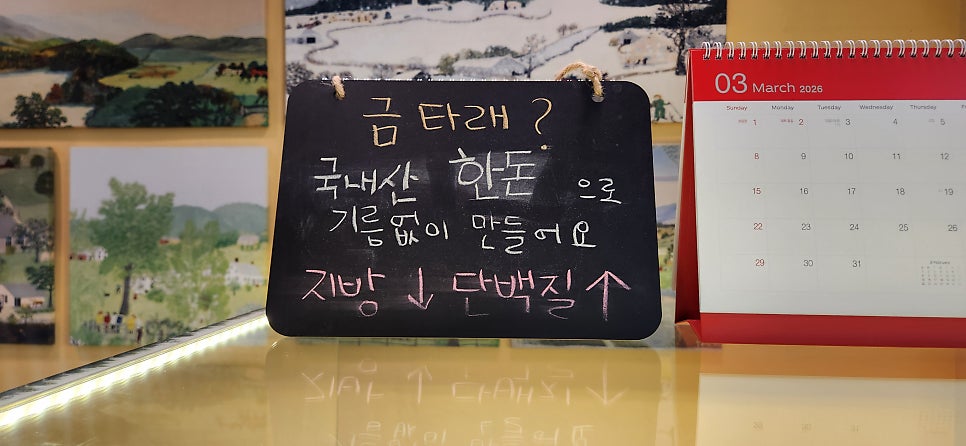 금타래?
국내산 한돈으로
기름없이 만들어요
지방↓ 단백질↑
03 March 2026
Sunday Monday Tuesday Wednesday Thursday
1 2 3 4 5
8 9 10 11 12
15 16 17 18 19
22 23 24 25 26
29 30 31